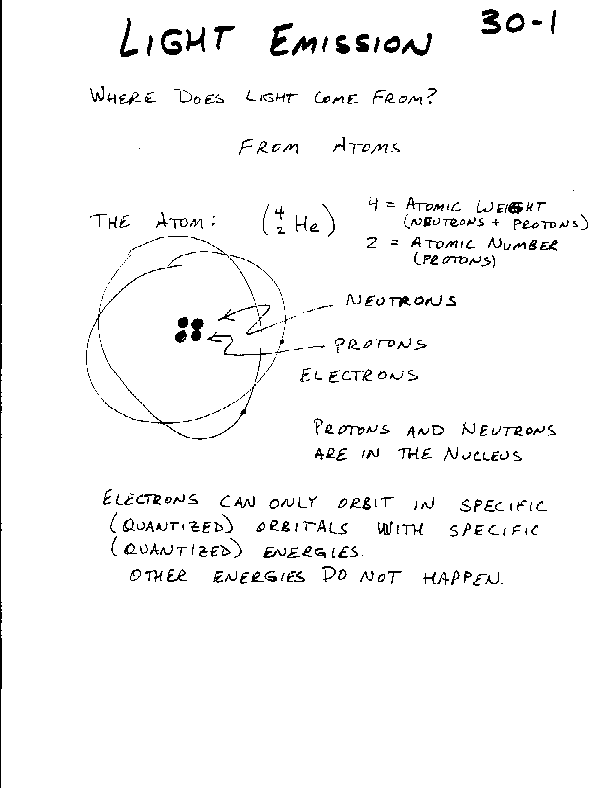 LIGHT EMISSION 30-1
WHERE DOES LIGHT COME FROM?
FROM ATOMS
THE ATOM: (4 2 He)
4 = ATOMIC WEIGHT
(NEUTRONS + PROTONS)
2 = ATOMIC NUMBER
(PROTONS)
NEUTRONS
PROTONS
ELECTRONS
PROTONS AND NEUTRONS
ARE IN THE NUCLEUS
ELECTRONS CAN ONLY ORBIT IN SPECIFIC
(QUANTIZED) ORBITALS WITH SPECIFIC
(QUANTIZED) ENERGIES.
OTHER ENERGIES DO NOT HAPPEN.